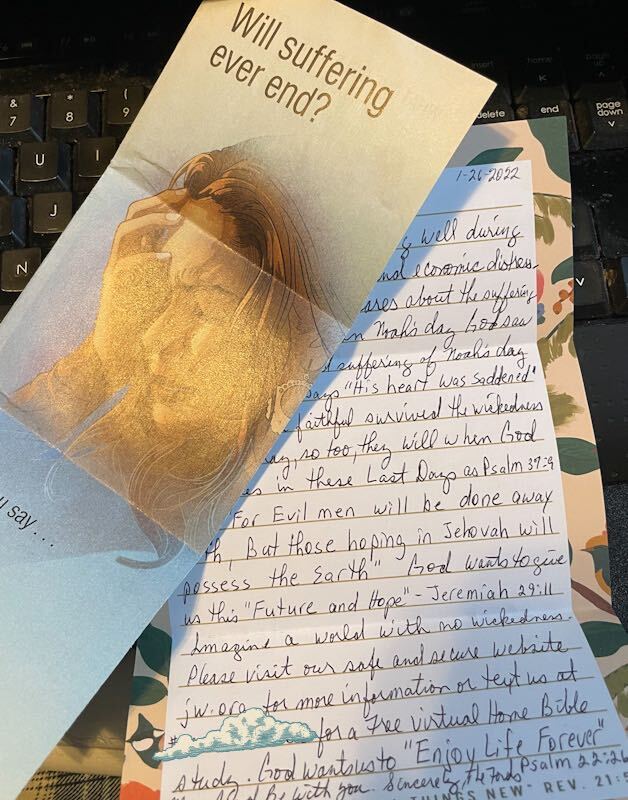 Will suffering
ever end?
u say...
1-26-2022
g well during
nd economic distress
ares about the suffering
n Noah's day God saw
d suffering of Noah's day
says "His heart was saddened"
faithful survived the wickedness
ay, so too, they will when God
es in these Last Days as Psalm 37:9
For Evil men will be done away
th, But those hoping in Jehovah will
possess the Earth" God wants to give
us this "Future and Hope" - Jeremiah 29:11
Imagine a world with no wickedness.
Please visit our safe and secure website
jw.org for more information or text us at
for a Free virtual Home Bible
study. God wants us to "Enjoy Life Forever"
be with you. Sincerely, Psalm 22:26
THINGS NEW" REV. 21:5
&
7
*
8
(
9
U
I
J
N
insert
home
K
page
up
delete
end
page
down
V
V